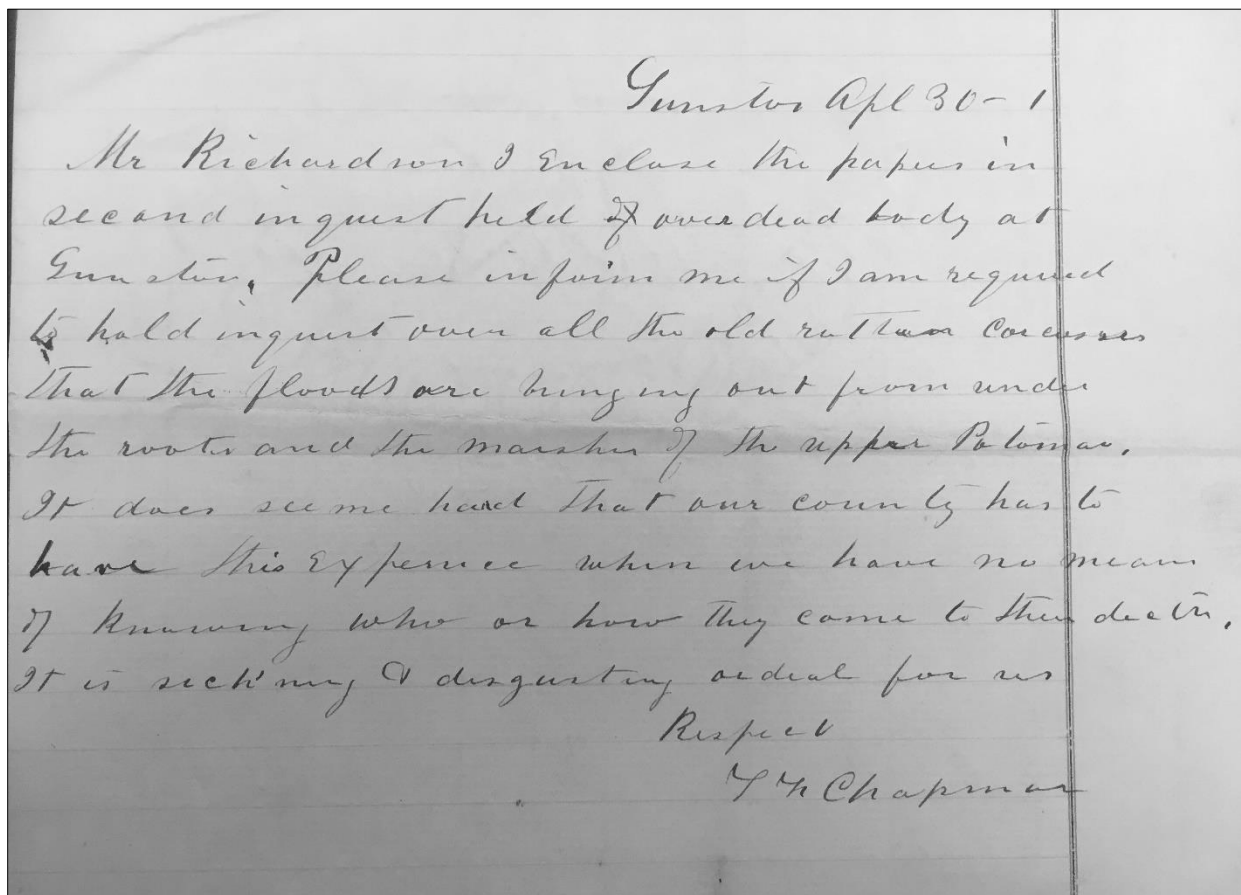 Gunston Apl 30 - 1
Mr Richardson I Enclose the papers in
second inquest held of over dead body at
Gunston. Please inform me if I am required
to hold inquest over all the old rotten carcasses
that the floods are bringing out from under
the roots and the marshes of the upper Potomac.
It does seeme hard that our county has to
have this Expence when we have no means
of knowing who or how they come to their death.
It is sick'ning & disgusting ordeal for us
Respect
Chapman